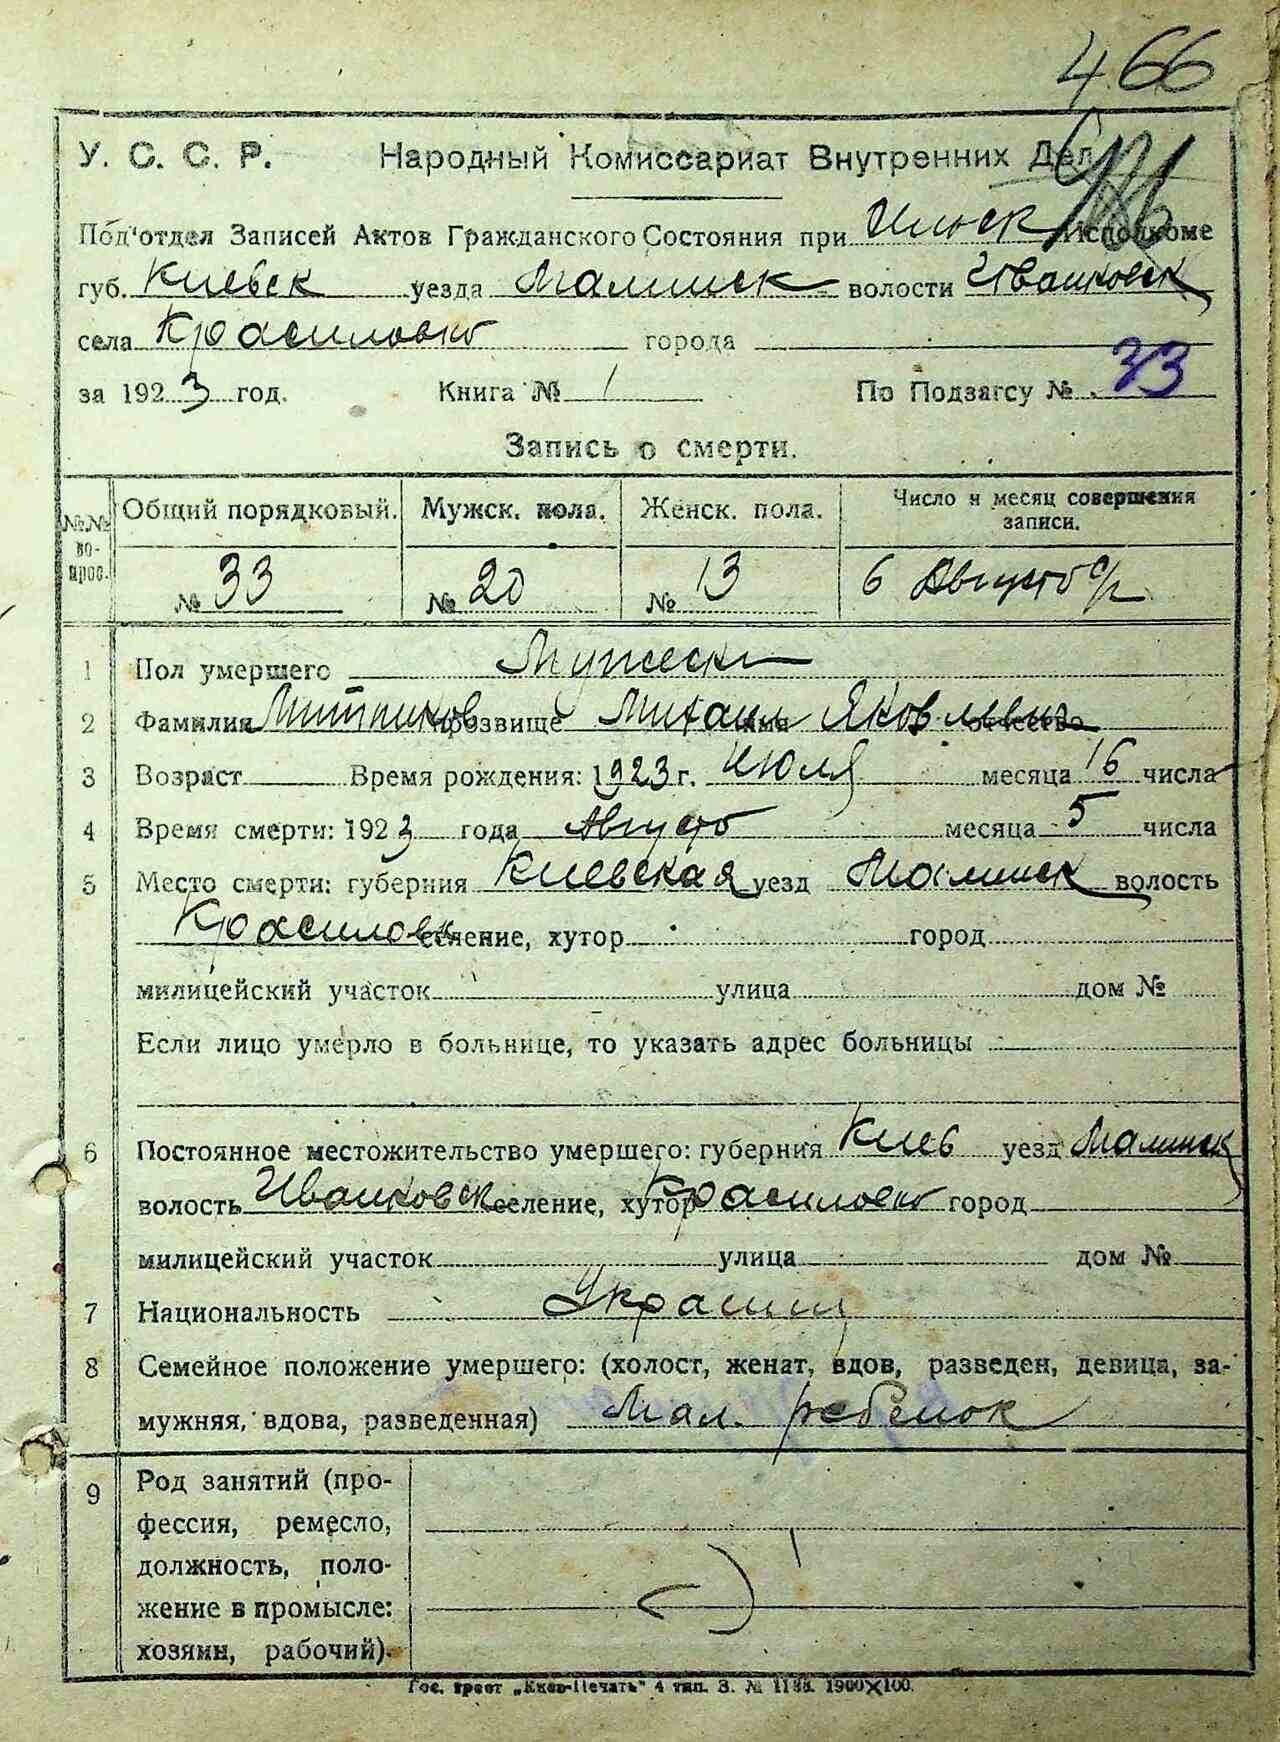 466
У. С. С. Р. Народный Комиссариат Внутренних Дел
Под'отдел Записей Актов Гражданского Состояния при Исполкоме
губ. Киевск уезда Малинск волости Иванковск
села Красиловка города
за 1923 год. Книга № 1 По Подзагсу № 33
Запись о смерти.
№№ во- прос. Общий порядковый. Мужск. пола. Женск. пола. Число и месяц совершения записи.
№ 33 № 20 № 13 6 Августа с/г
1 Пол умершего Мужеск
2 Фамилия прозвище Михаил имя Яковлевич отчество
3 Возраст Время рождения: 1923 г. Июля месяца 16 числа
4 Время смерти: 1923 года Августа месяца 5 числа
5 Место смерти: губерния Киевская уезд Малинск волость
Красиловк селение, хутор город
милицейский участок улица дом №
Если лицо умерло в больнице, то указать адрес больницы
6 Постоянное местожительство умершего: губерния Киев уезд Малинск
волость Иванковск селение, хутор Красиловка город
милицейский участок улица дом №
7 Национальность Украинц
8 Семейное положение умершего: (холост, женат, вдов, разведен, девица, за-
мужняя, вдова, разведенная) Мал. ребенок
9 Род занятий (про-
фессия, ремесло,
должность, поло-
жение в промысле:
хозяин, рабочий).
Гос. трест „Киев-Печать" 4 тип. З. № 1188. 1900×100.